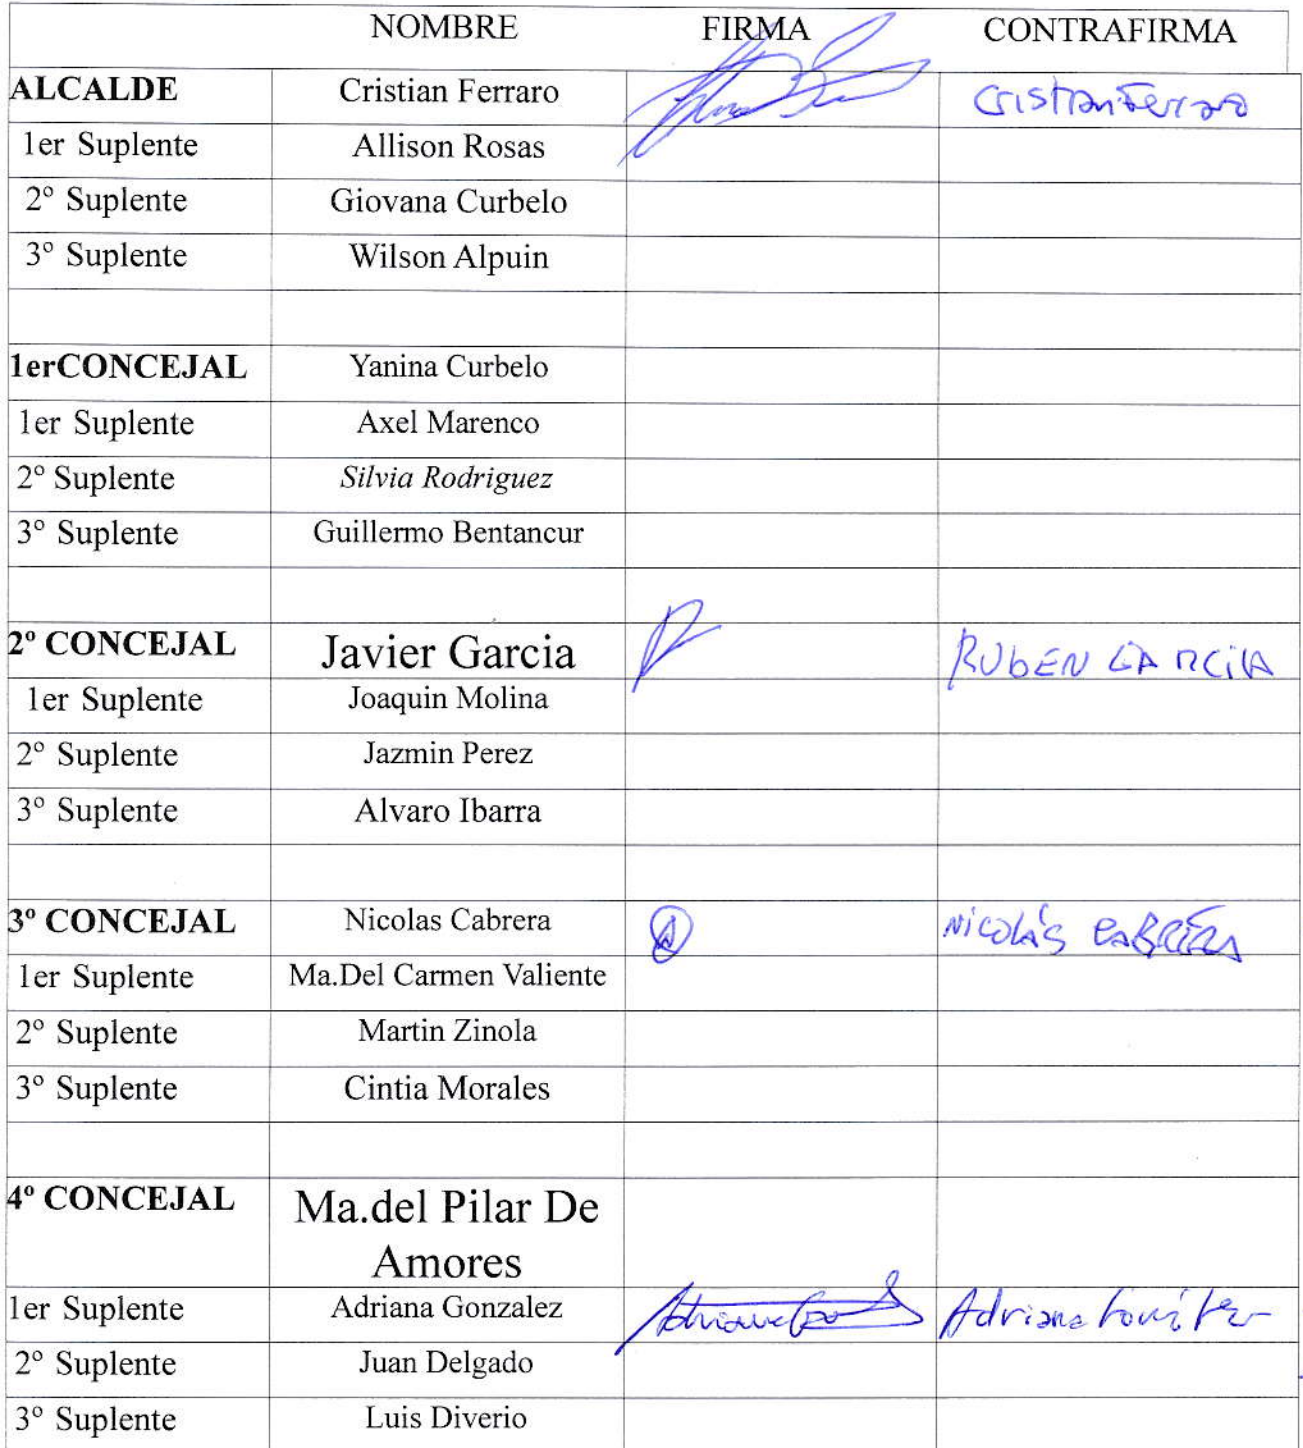 NOMBRE FIRMA CONTRAFIRMA
ALCALDE Cristian Ferraro Cristian Ferraro
1er Suplente Allison Rosas
2º Suplente Giovana Curbelo
3º Suplente Wilson Alpuin
1erCONCEJAL Yanina Curbelo
1er Suplente Axel Marenco
2º Suplente Silvia Rodriguez
3º Suplente Guillermo Bentancur
2º CONCEJAL Javier Garcia RUbEN GARCiA
1er Suplente Joaquin Molina
2º Suplente Jazmin Perez
3º Suplente Alvaro Ibarra
3º CONCEJAL Nicolas Cabrera Nicolás CABRERA
1er Suplente Ma.Del Carmen Valiente
2º Suplente Martin Zinola
3º Suplente Cintia Morales
4º CONCEJAL Ma.del Pilar De
Amores
1er Suplente Adriana Gonzalez Adriana Adriana
2º Suplente Juan Delgado
3º Suplente Luis Diverio